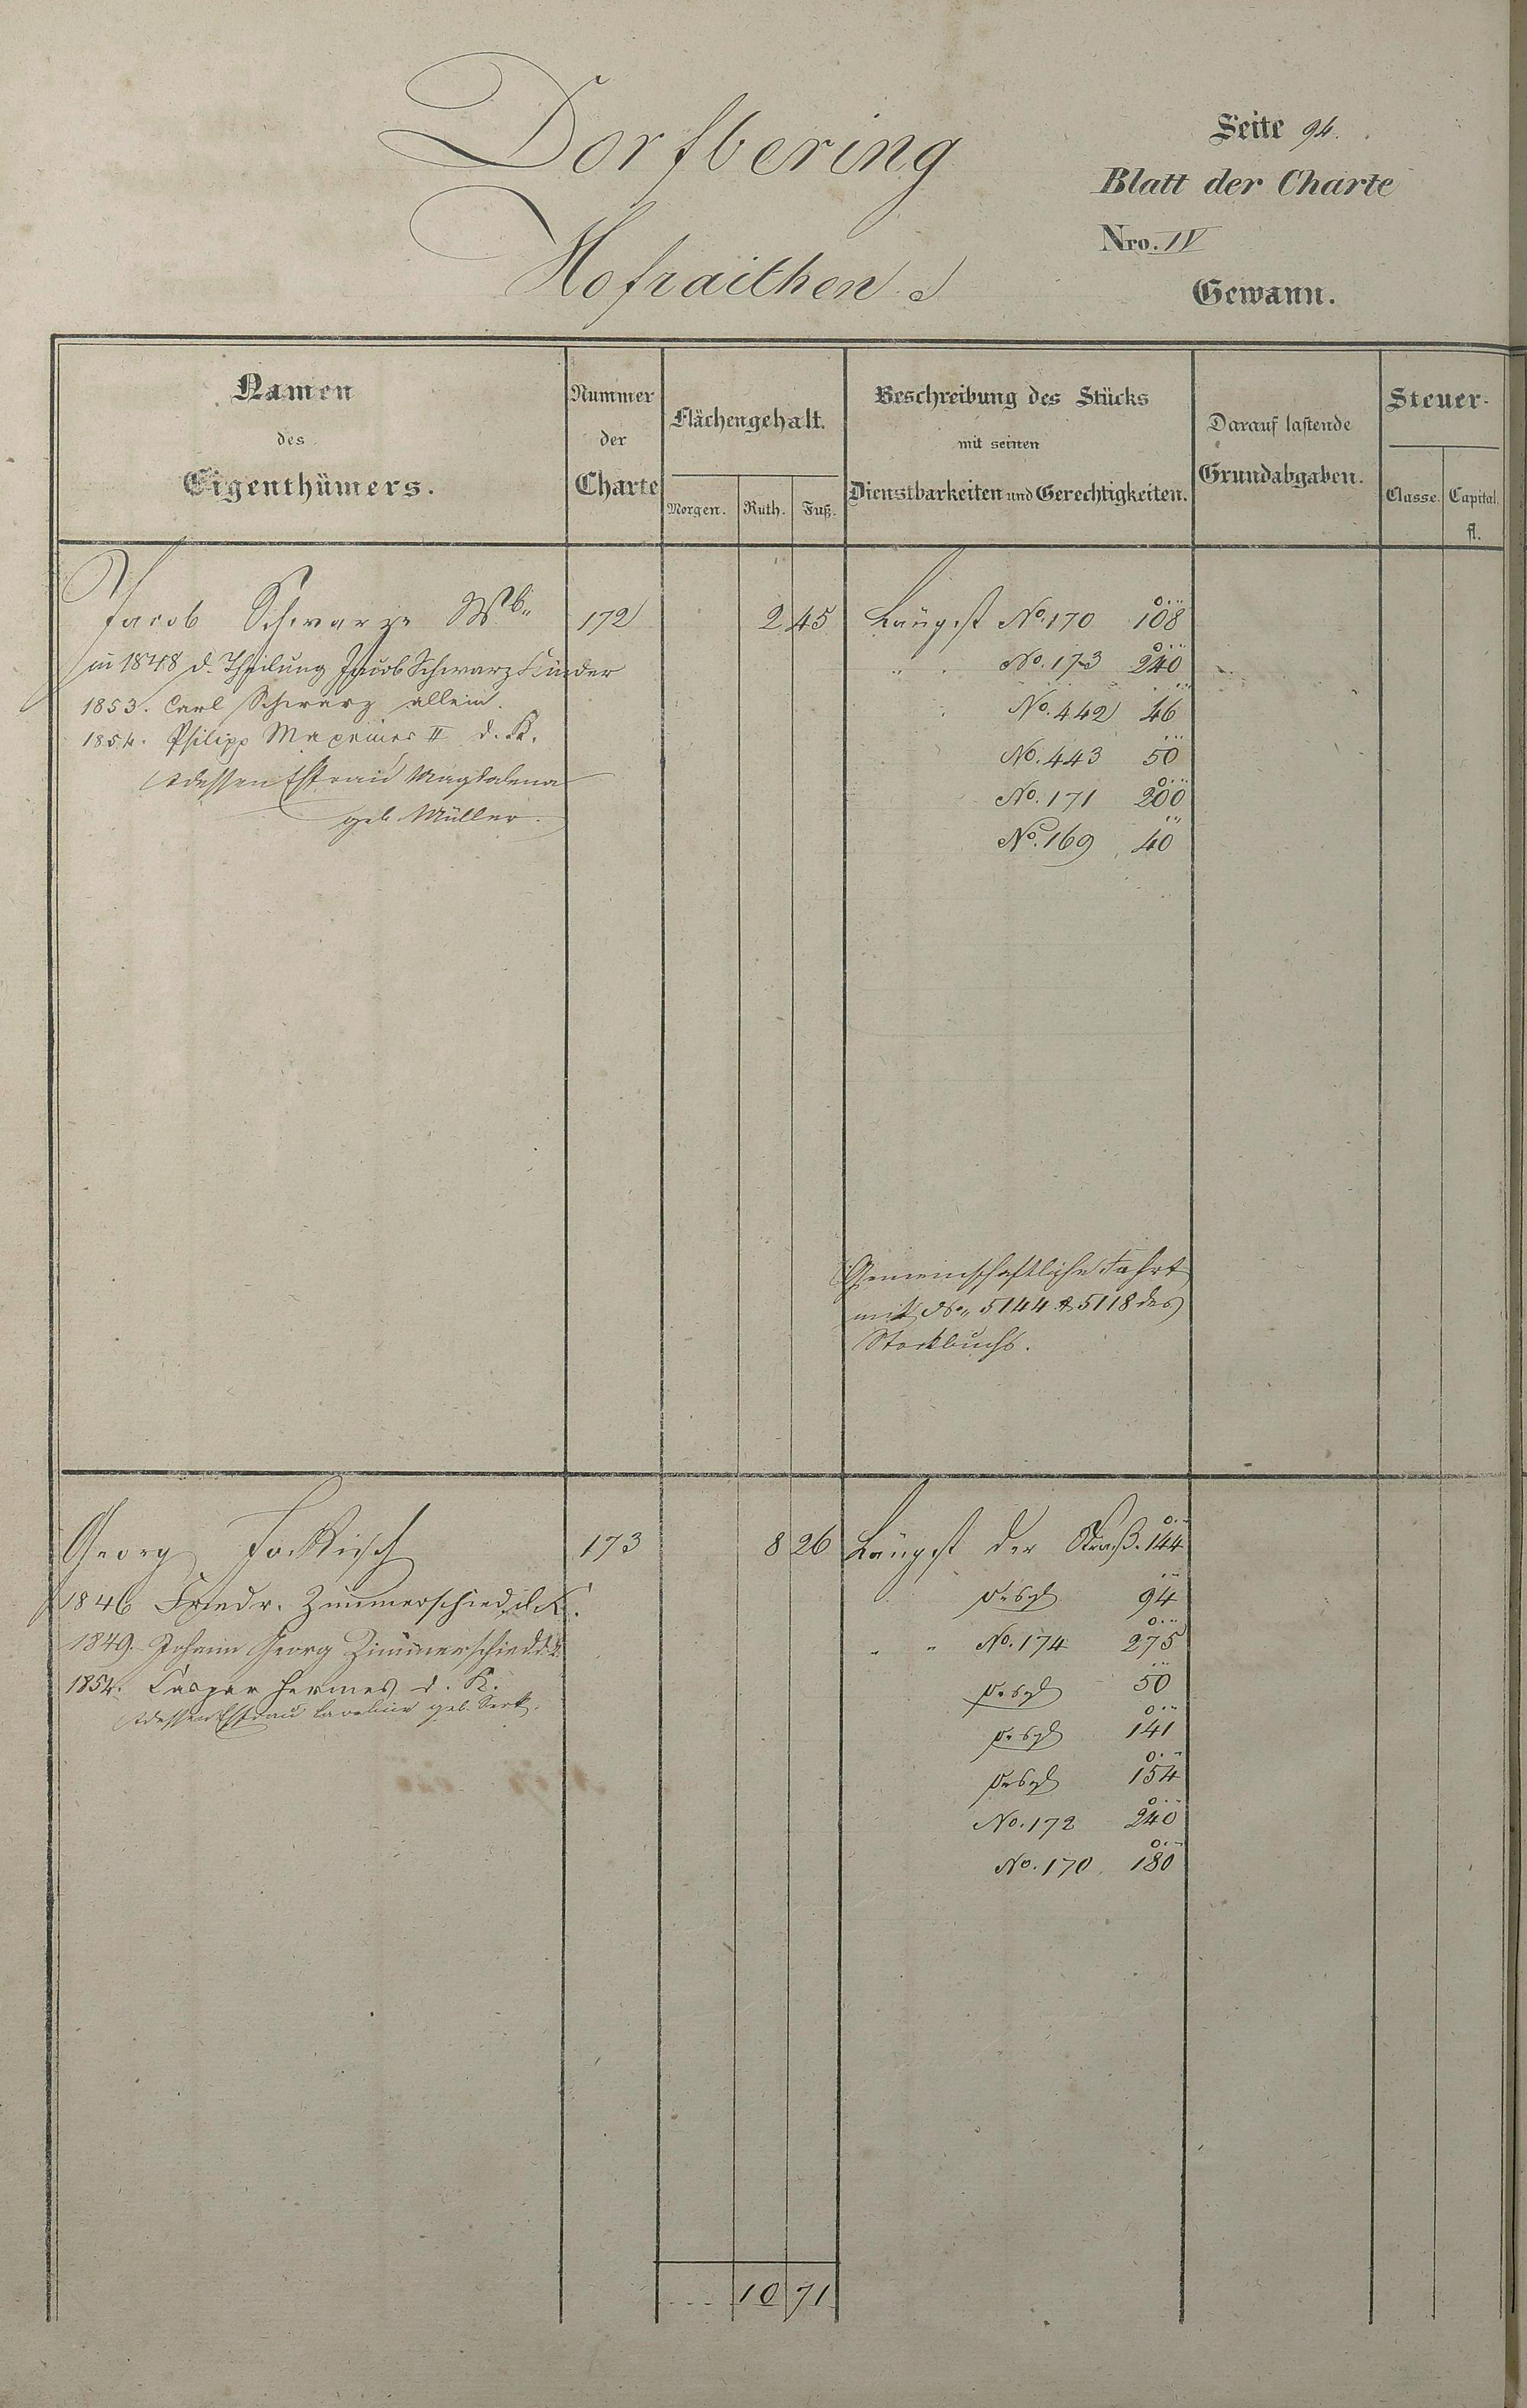 Dorfbering
Hofraithen
Seite 94.
Blatt der Charte
Nro. IV
Gewann.
Namen
des
Eigenthümers.
Nummer
der
Charte
Flächengehalt.
Morgen. Ruth. Fuß.
Beschreibung des Stücks
mit seinen
Dienstbarkeiten und Gerechtigkeiten.
Darauf lastende
Grundabgaben.
Steuer-
Classe. Capital.
fl.
Jacob Schwarz Wb. 172 2 45 Längst No. 170 108
in 1848 d. Theilung Jacob Schwarz Kinder " No. 173 240
1853. Carl Schwarz allein. No. 442 46
1854. Philipp Maxeiner II d. K. No. 443 50
dessen Ehfrau Magdalena No. 171 200
geb. Müller. No. 169 40
Gemeinschaftliche Fahrt
mit No. 5144 & 5118 des
Stockbuchs.
Georg 173 8 26 Längst der Straß. 144
1846 Friedr. Zimmerschied d. K. desgl 94
1849. Johann Georg Zimmerschied d. K. " " No. 174 275
1854. Caspar Hermes d. K. desgl 50
dessen Ehfrau Caroline geb. desgl 141
desgl 154
No. 172 240
No. 170 180
10 71